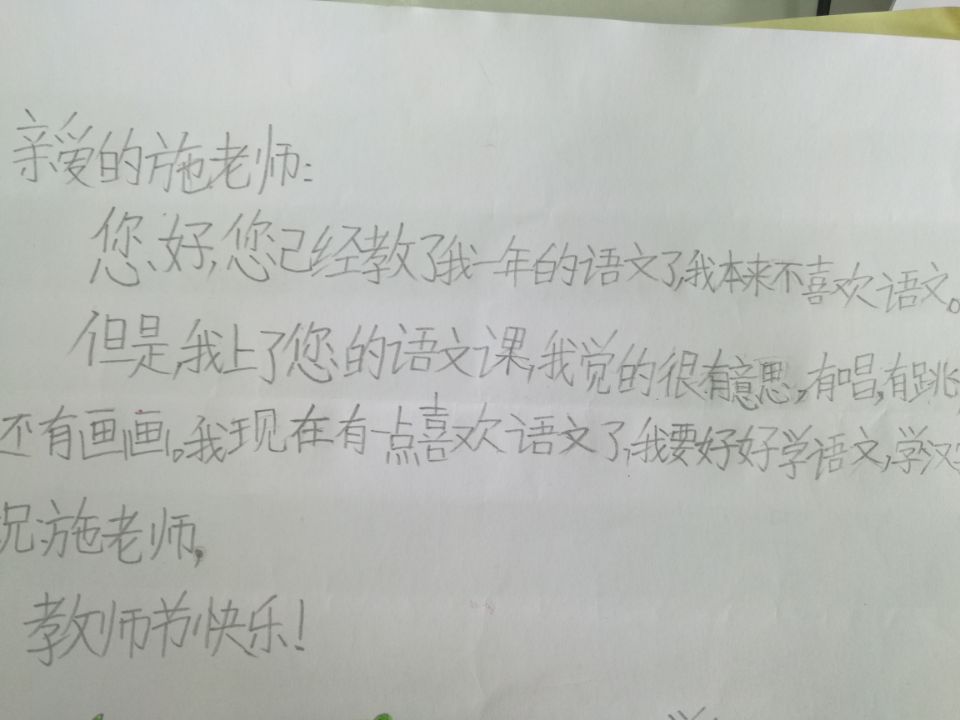 亲爱的施老师:
您好,您已经教了我一年的语文了,我本来不喜欢语文。
但是,我上了您的语文课,我觉的很有意思,有唱,有跳,
还有画画。我现在有一点喜欢语文了,我要好好学语文,学汉字
况施老师,
教师节快乐!